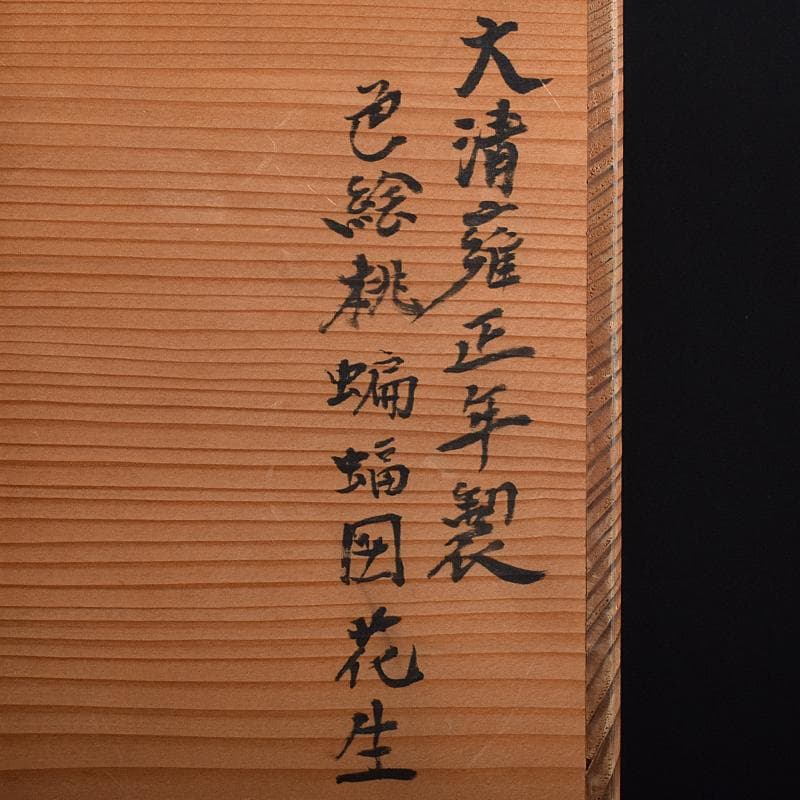 大清雍正年製
色絵桃蝙蝠図花生